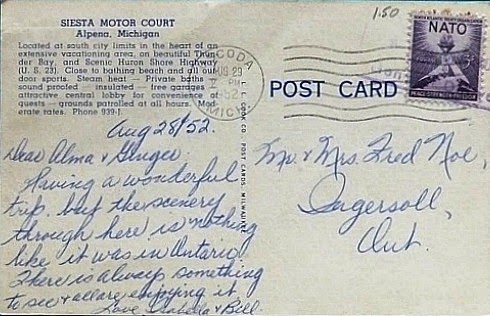 SIESTA MOTOR COURT
Alpena, Michigan
Located at south city limits in the heart of an
extensive vacationing area, on beautiful Thun-
der Bay, and Scenic Huron Shore Highway
(U. S. 23). Close to bathing beach and all out-
door sports. Steam heat — Private baths —
sound proofed — insulated — free garages —
attractive central lobby for convenience of
guests — grounds patrolled at all hours. Mod-
erate rates. Phone 939-J.
Aug 28/52.
Dear Alma & Ginger.
Having a wonderful
trip. but the scenery
through here is nothing
like it was in Ontario
There is always something
to see & all are enjoying it
Love Isabella & Bill.
L. L. COOK CO. POST CARDS, MILWAUKEE
OSCODA
AUG 29
PM
1952
MICH
1.50
NATO
3¢
POST CARD
Mr. & Mrs. Fred Noe,
Ingersoll,
Ont.